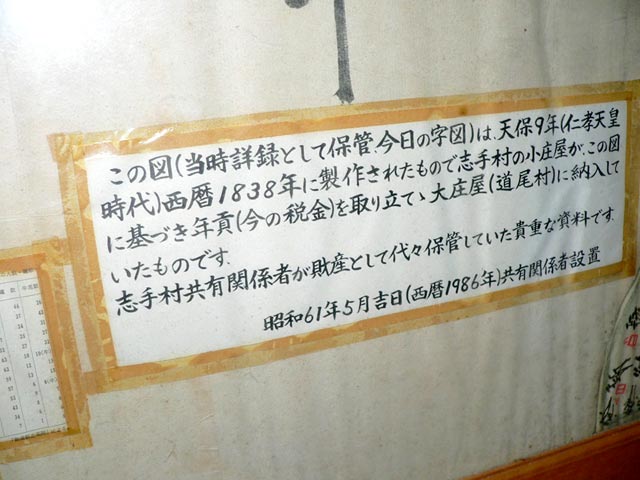 この図(当時詳録として保管、今日の字図)は、天保9年(仁孝天皇
時代)西暦1838年に製作されたもので志手村の小庄屋が、この図
に基づき年貢(今の税金)を取り立てゝ大庄屋(道尾村)に納入して
いたものです.
志手村共有関係者が財産として代々保管していた貴重な資料です.
昭和61年5月吉日(西暦1986年)共有関係者設置